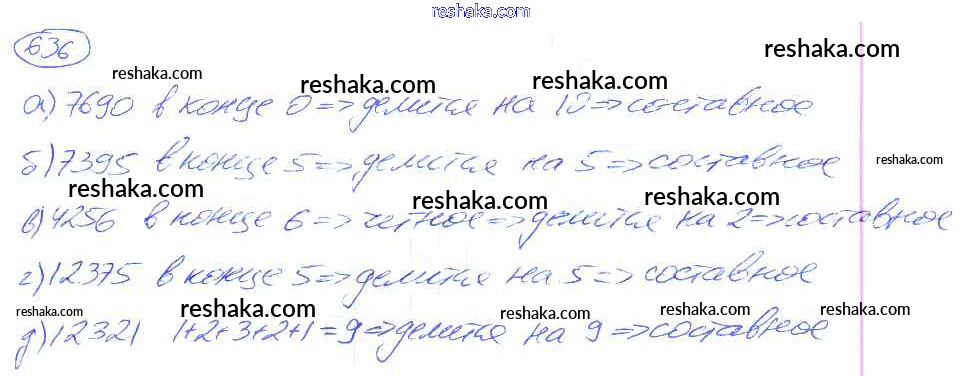 reshaka.com
636
reshaka.com
reshaka.com reshaka.com reshaka.com
а) 7690 в конце 0 => делится на 10 => составное
б) 7395 в конце 5 => делится на 5 => составное
reshaka.com
reshaka.com reshaka.com reshaka.com
в) 4256 в конце 6 => четное => делится на 2 => составное
reshaka.com reshaka.com
г) 12375 в конце 5 => делится на 5 => составное
reshaka.com reshaka.com reshaka.com reshaka.com reshaka.com
д) 12321 1+2+3+2+1=9 => делится на 9 => составное